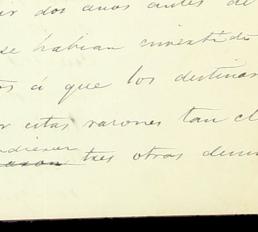 dos años antes de
se habian invertido
os á que los destinar
r estas razones tan cl
ndieran
tres otras